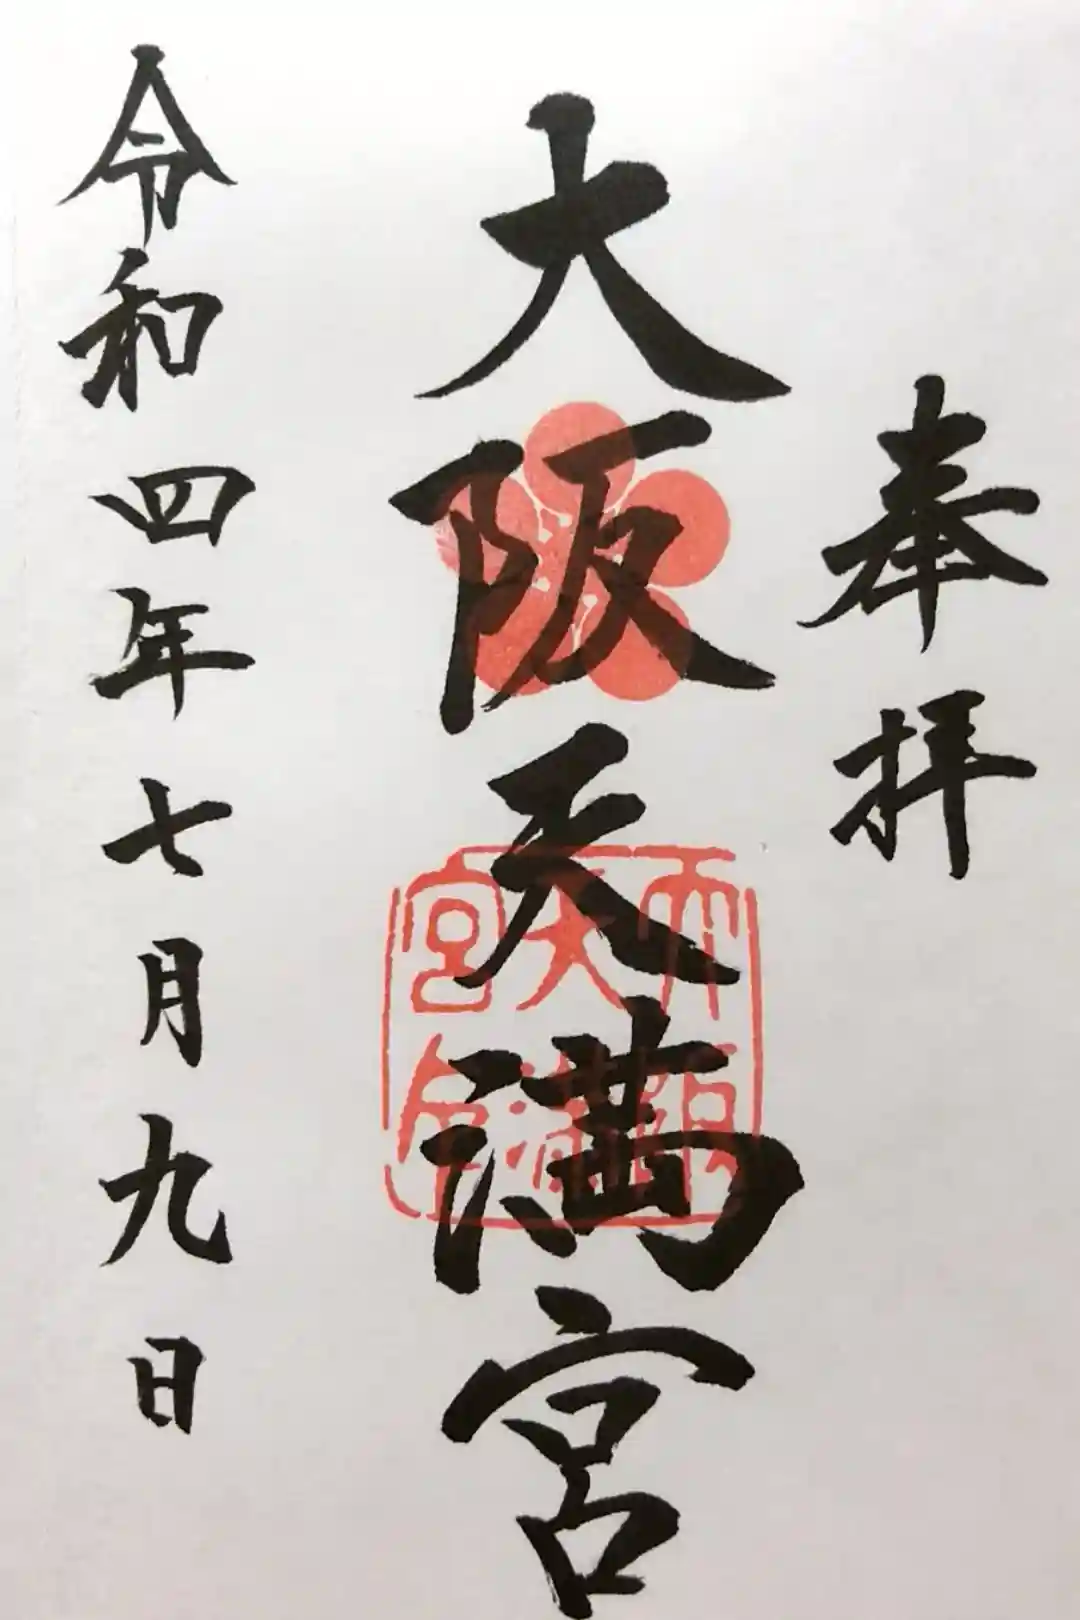 奉拝
大阪天満宮
令和四年七月九日
大阪
天満
宮印